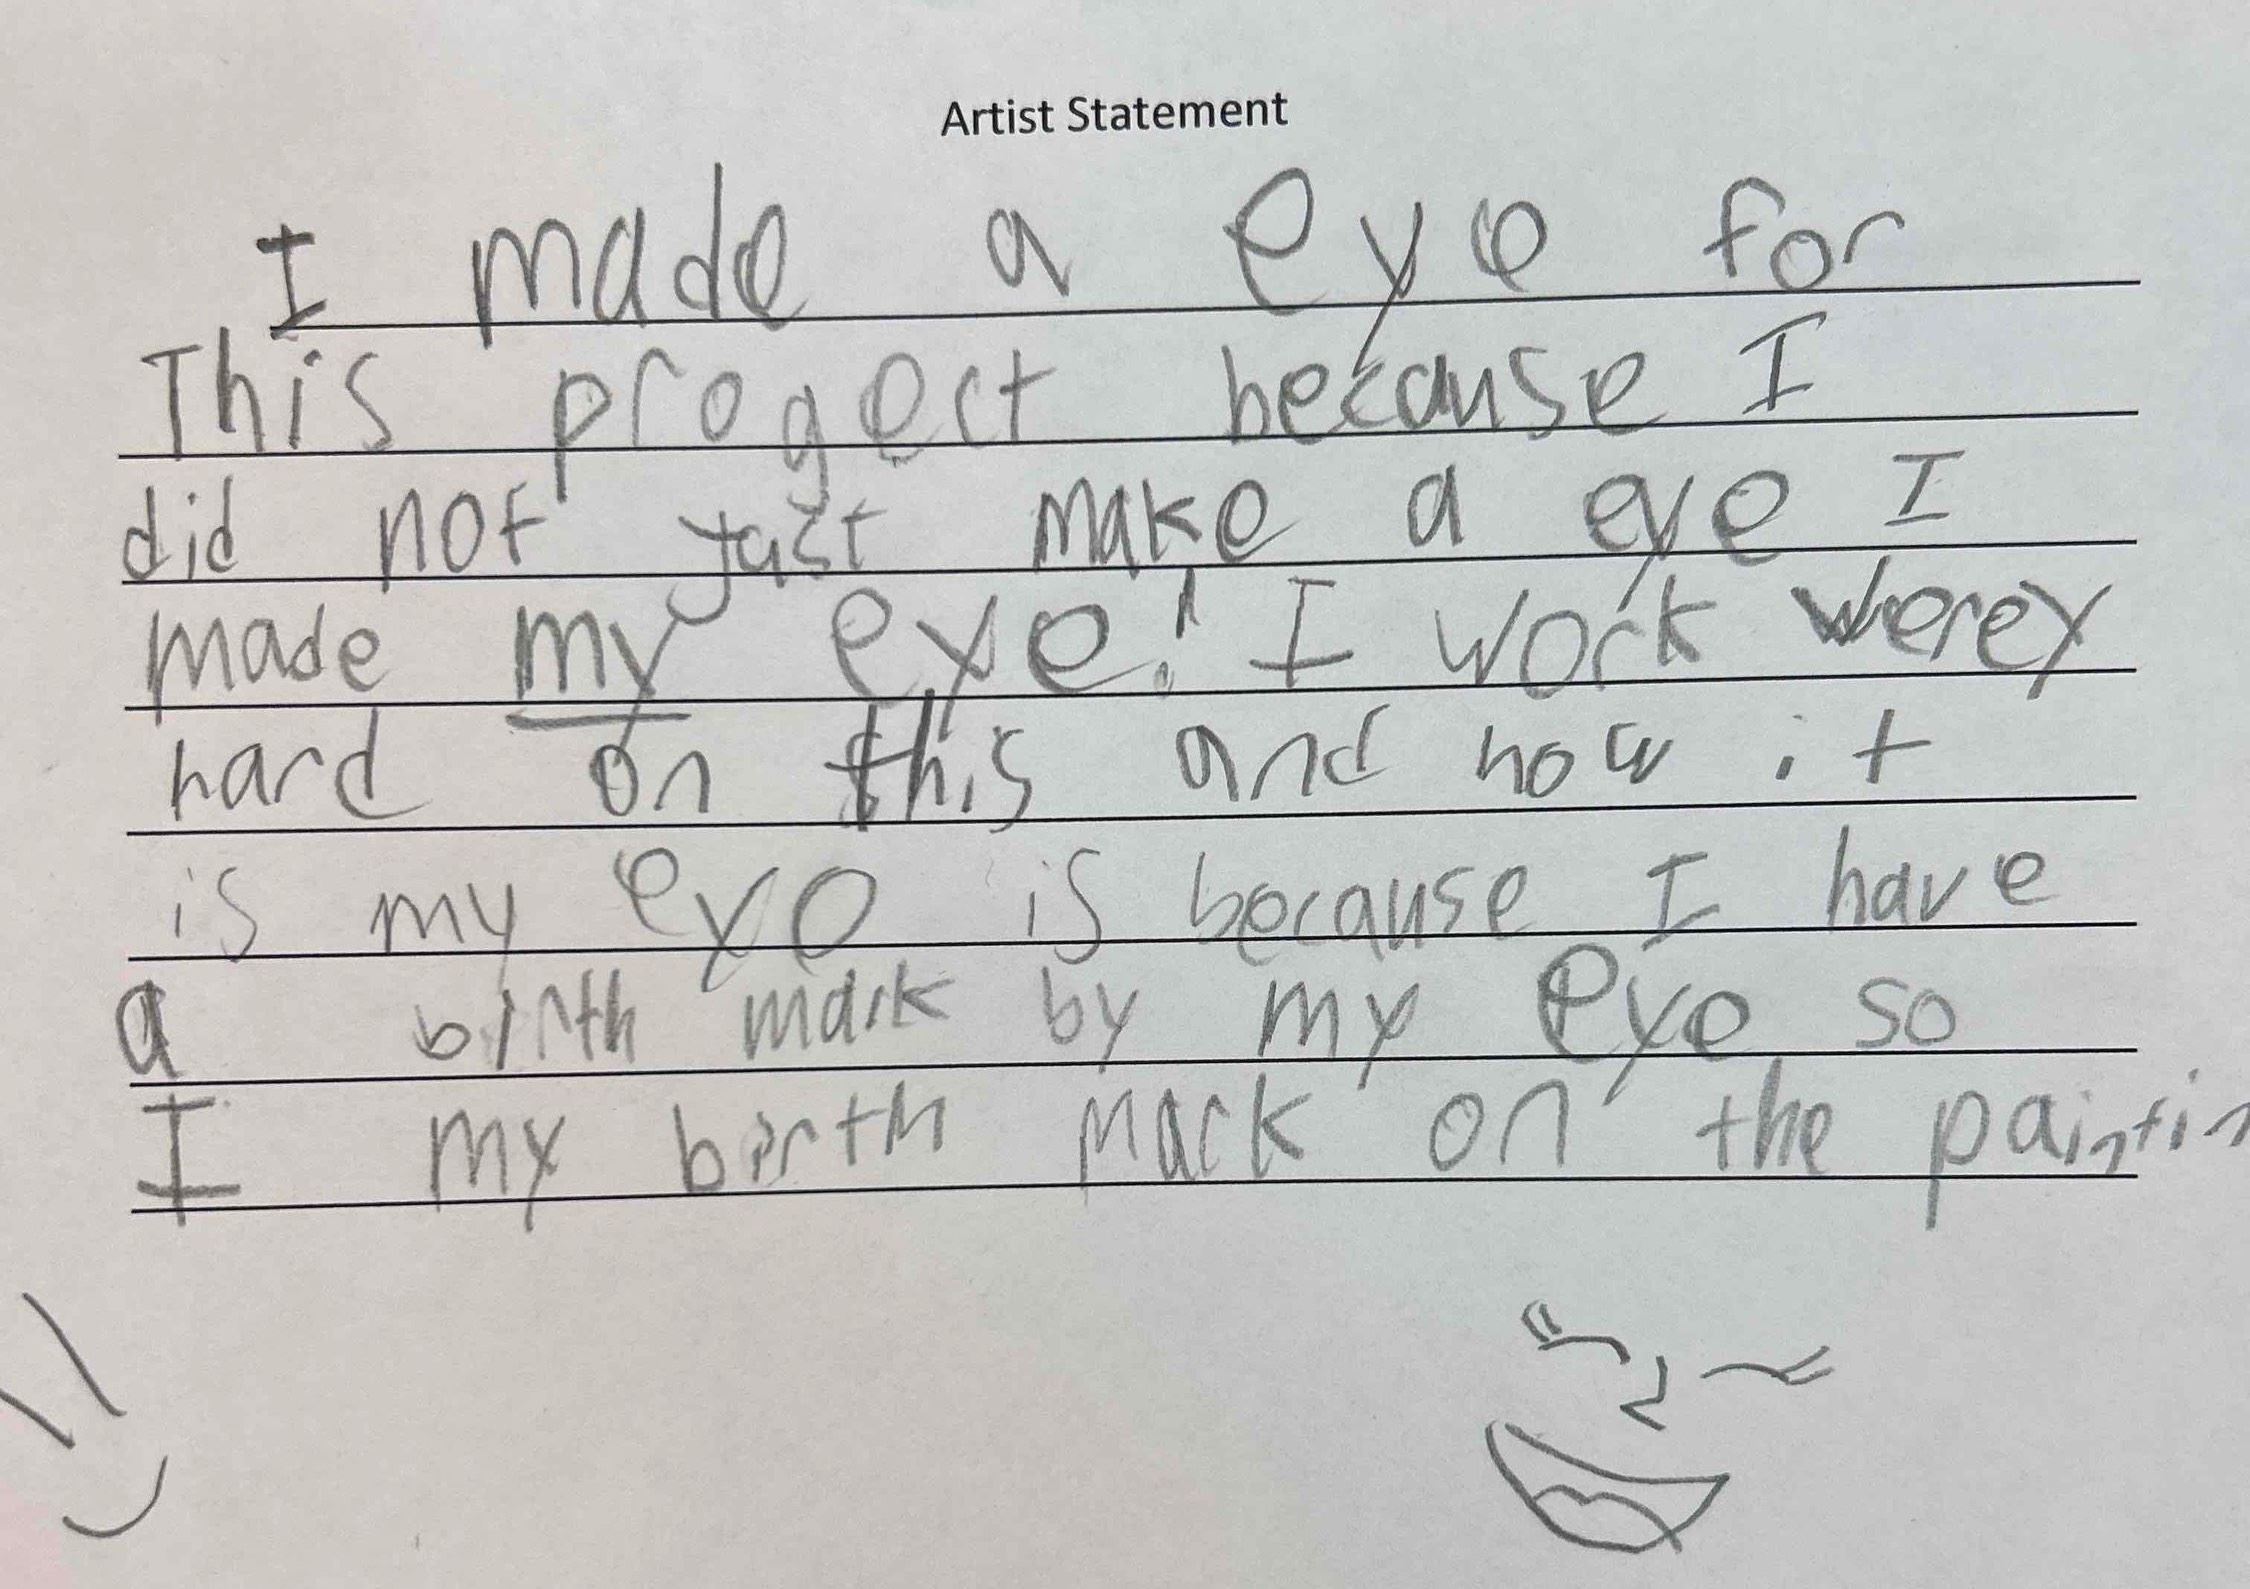 Artist Statement
I made a eye for
This progect because I
did not just make a eye I
made my eye! I work werey
hard on this and how it
is my eye is because I have
a birth mark by my eye so
I my birth marck on the paintin